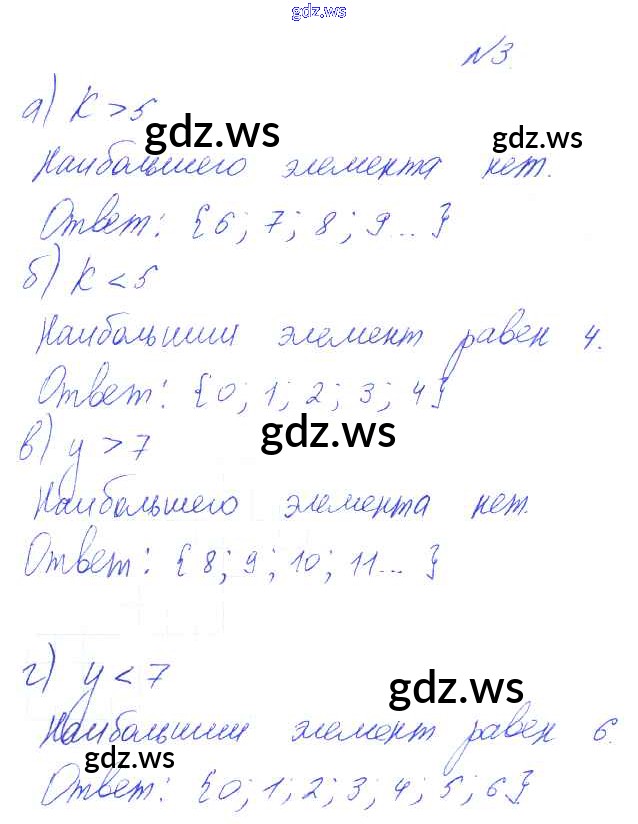 gdz.ws
№3.
а) K > 5
gdz.ws
gdz.ws
Наибольшего элемента нет.
Ответ: {6; 7; 8; 9...}
б) K < 5
Наибольший элемент равен 4.
Ответ: {0; 1; 2; 3; 4}
gdz.ws
в) y > 7
Наибольшего элемента нет.
Ответ: {8; 9; 10; 11...}
г) y < 7
gdz.ws
Наибольший элемент равен 6.
gdz.ws
Ответ: {0; 1; 2; 3; 4; 5; 6}